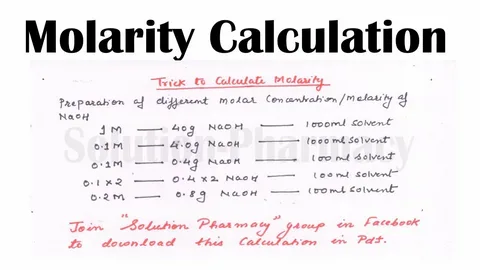 Molarity Calculation
Trick to Calculate Molarity
Preparation of different Molar Concentration/Molarity of
NaOH
1M — 40g NaOH — 1000ml Solvent
0.1M — 4.0g NaOH — 1000ml Solvent
0.1M — 0.4g NaOH — 100ml Solvent
0.1×2 — 0.4×2 NaOH — 100ml Solvent
0.2M — 0.8g NaOH — 100ml Solvent
Solution Pharmacy
Join "Solution Pharmacy" group in Facebook
to download this Calculation in Pdf.